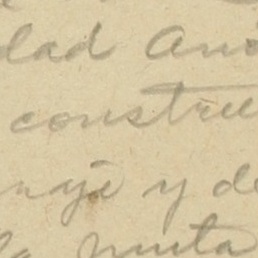 dad Anó
constru
naje y de
la punta